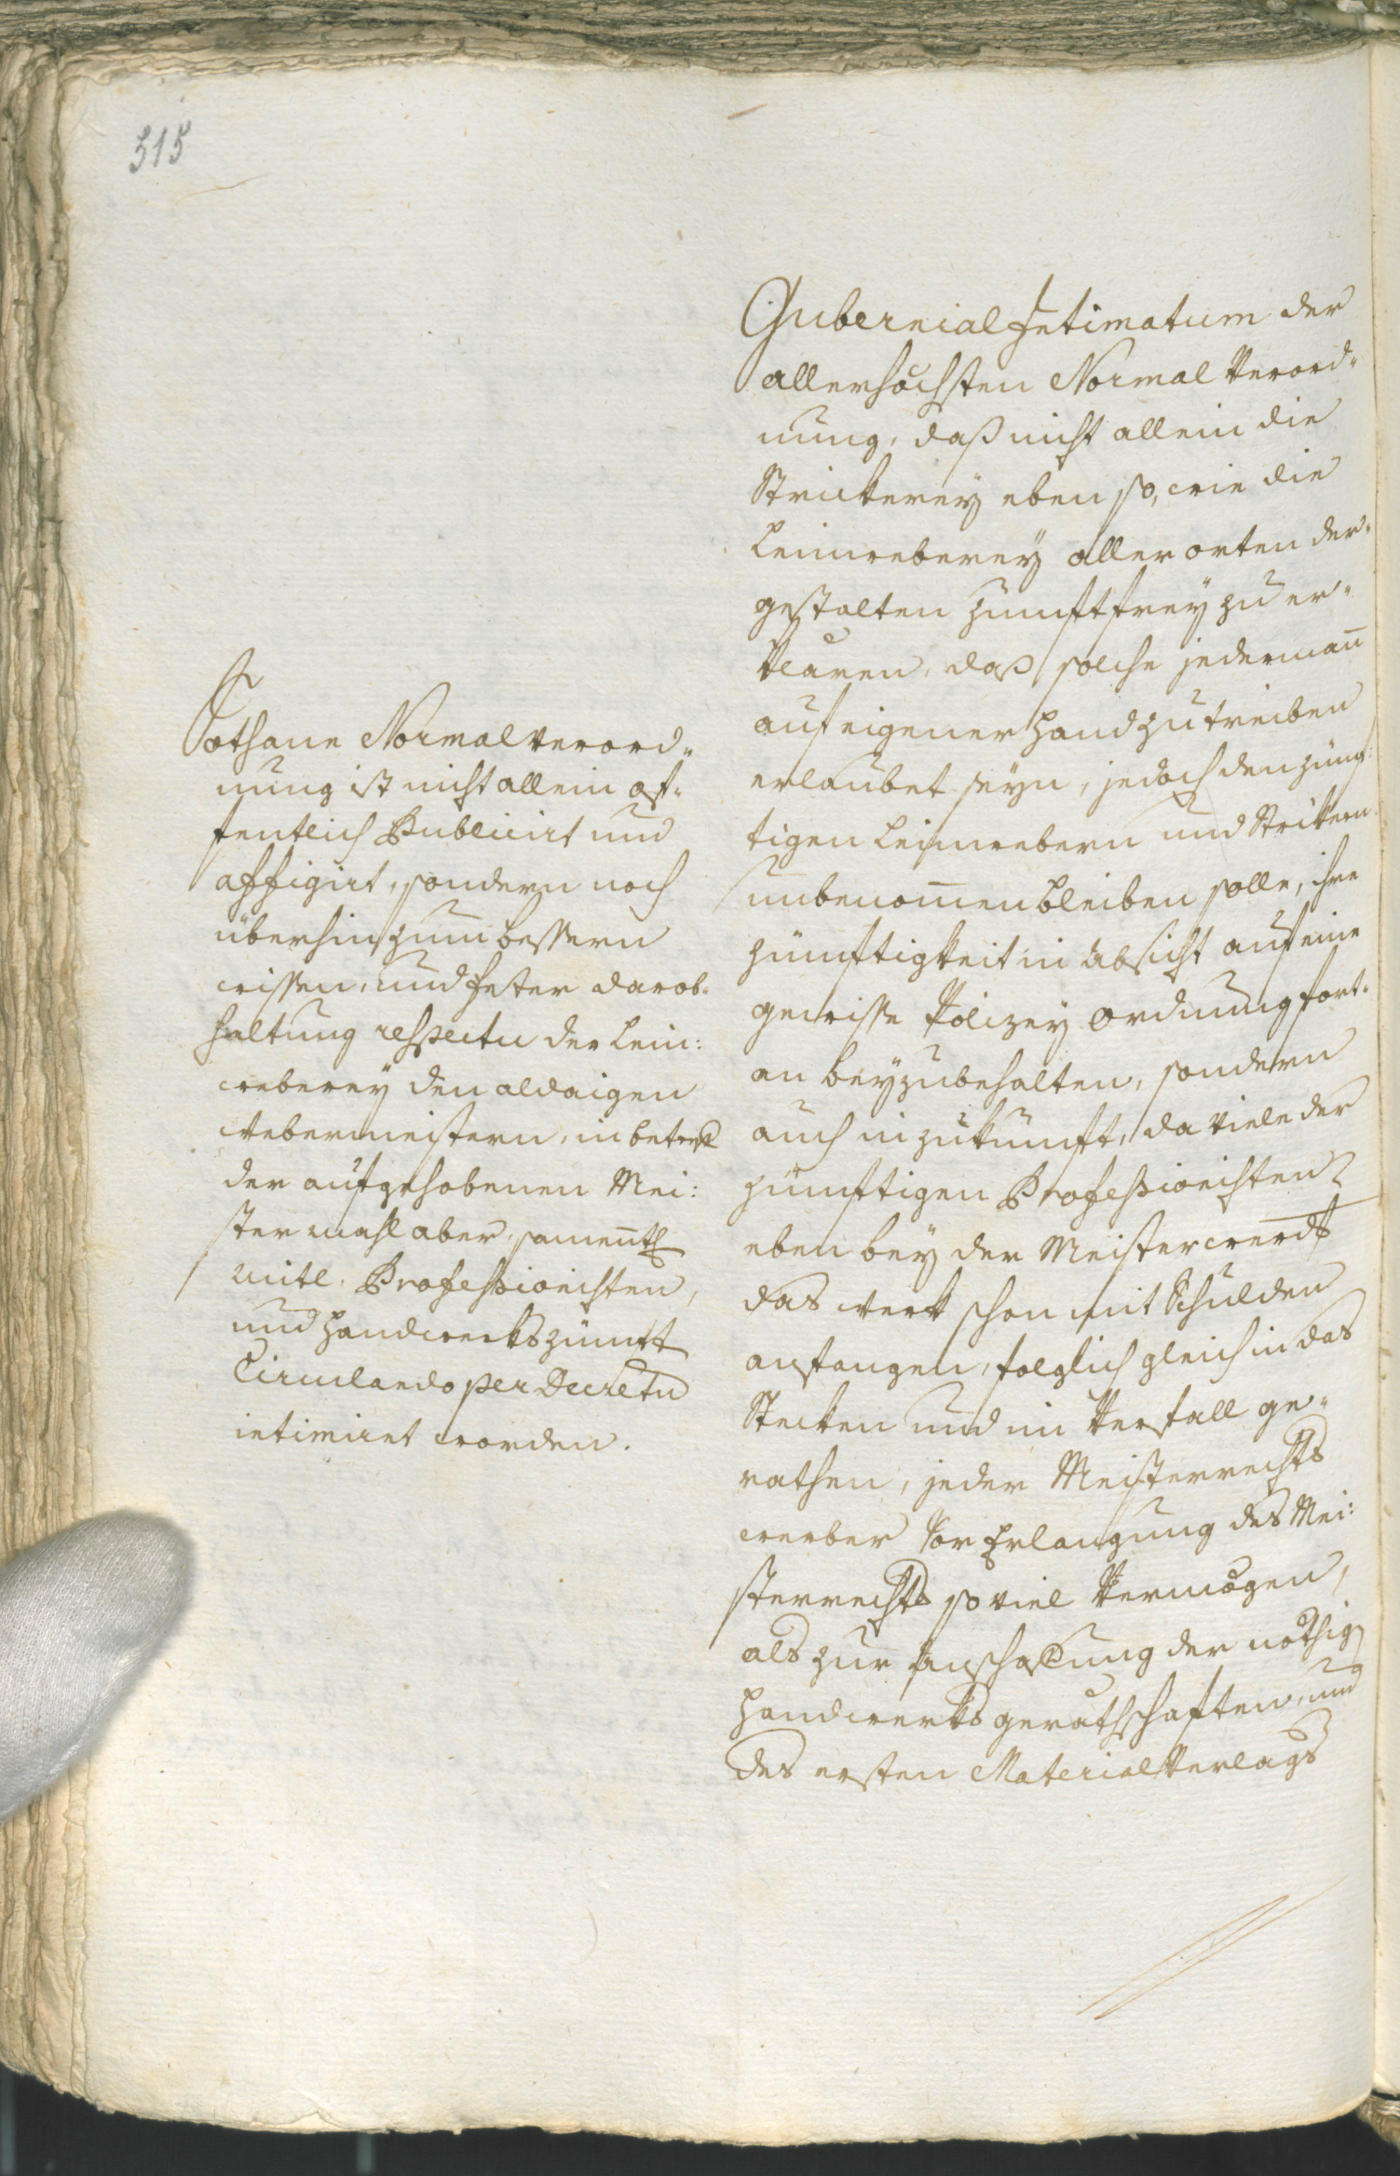 515
Gubernial Intimatum der
allerhöchsten Normal Verord„
nung, daß nicht allein die
Strickerey eben so, wie die
Leinweberey aller orten der„
gestalten zunftfrey zu er„
klären, daß solche jederman̄
auf eigener Hand zu treiben
erlaubet seyn, jedoch den zünf„
tigen Leinwebern und Strikern
unbenom̄en bleiben solle, ihre
Zünftigkeit in Absicht auf eine
gewisse Polizey Ordnung fort„
an beyzubehalten, sondern
auch in Zukunft, da viele der
zünftigen Profeßionisten
eben bey der Meisterwerdt
das Werk schon mit Schulden
anfangen, folglich gleich in das
Stecken und in Verfall ge„
rathen, jeder Meisterrechts
werber vor Erlangung des Mei:
sterrechts so viel Vermögen,
als zur Anschaffung der nöthig
Handwerks geräthschaften, und
des ersten Material Verlags
Sothane Normal Verord„
nung ist nicht allein öf„
fentlich Publicirt und
affigirt, sondern noch
überhin zum bessern
wissen, und steter darob„
haltung respectu der Lein:
weberey den aldaigen
Webermeistern, in betref
der aufgehobenen Mei:
ster mahl aber, sam̄entl
mitl. Profeßionisten,
und Handwerkszünft
Circulando per Decretu
intimiret worden.